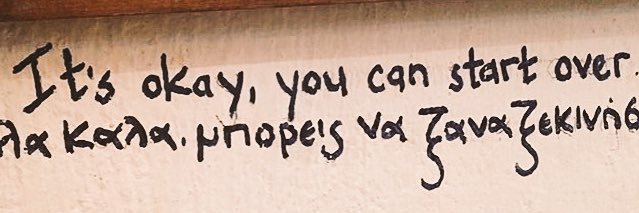 It's okay, you can start over.
λα καλα. μπορεις να ξαναξεκινήσ